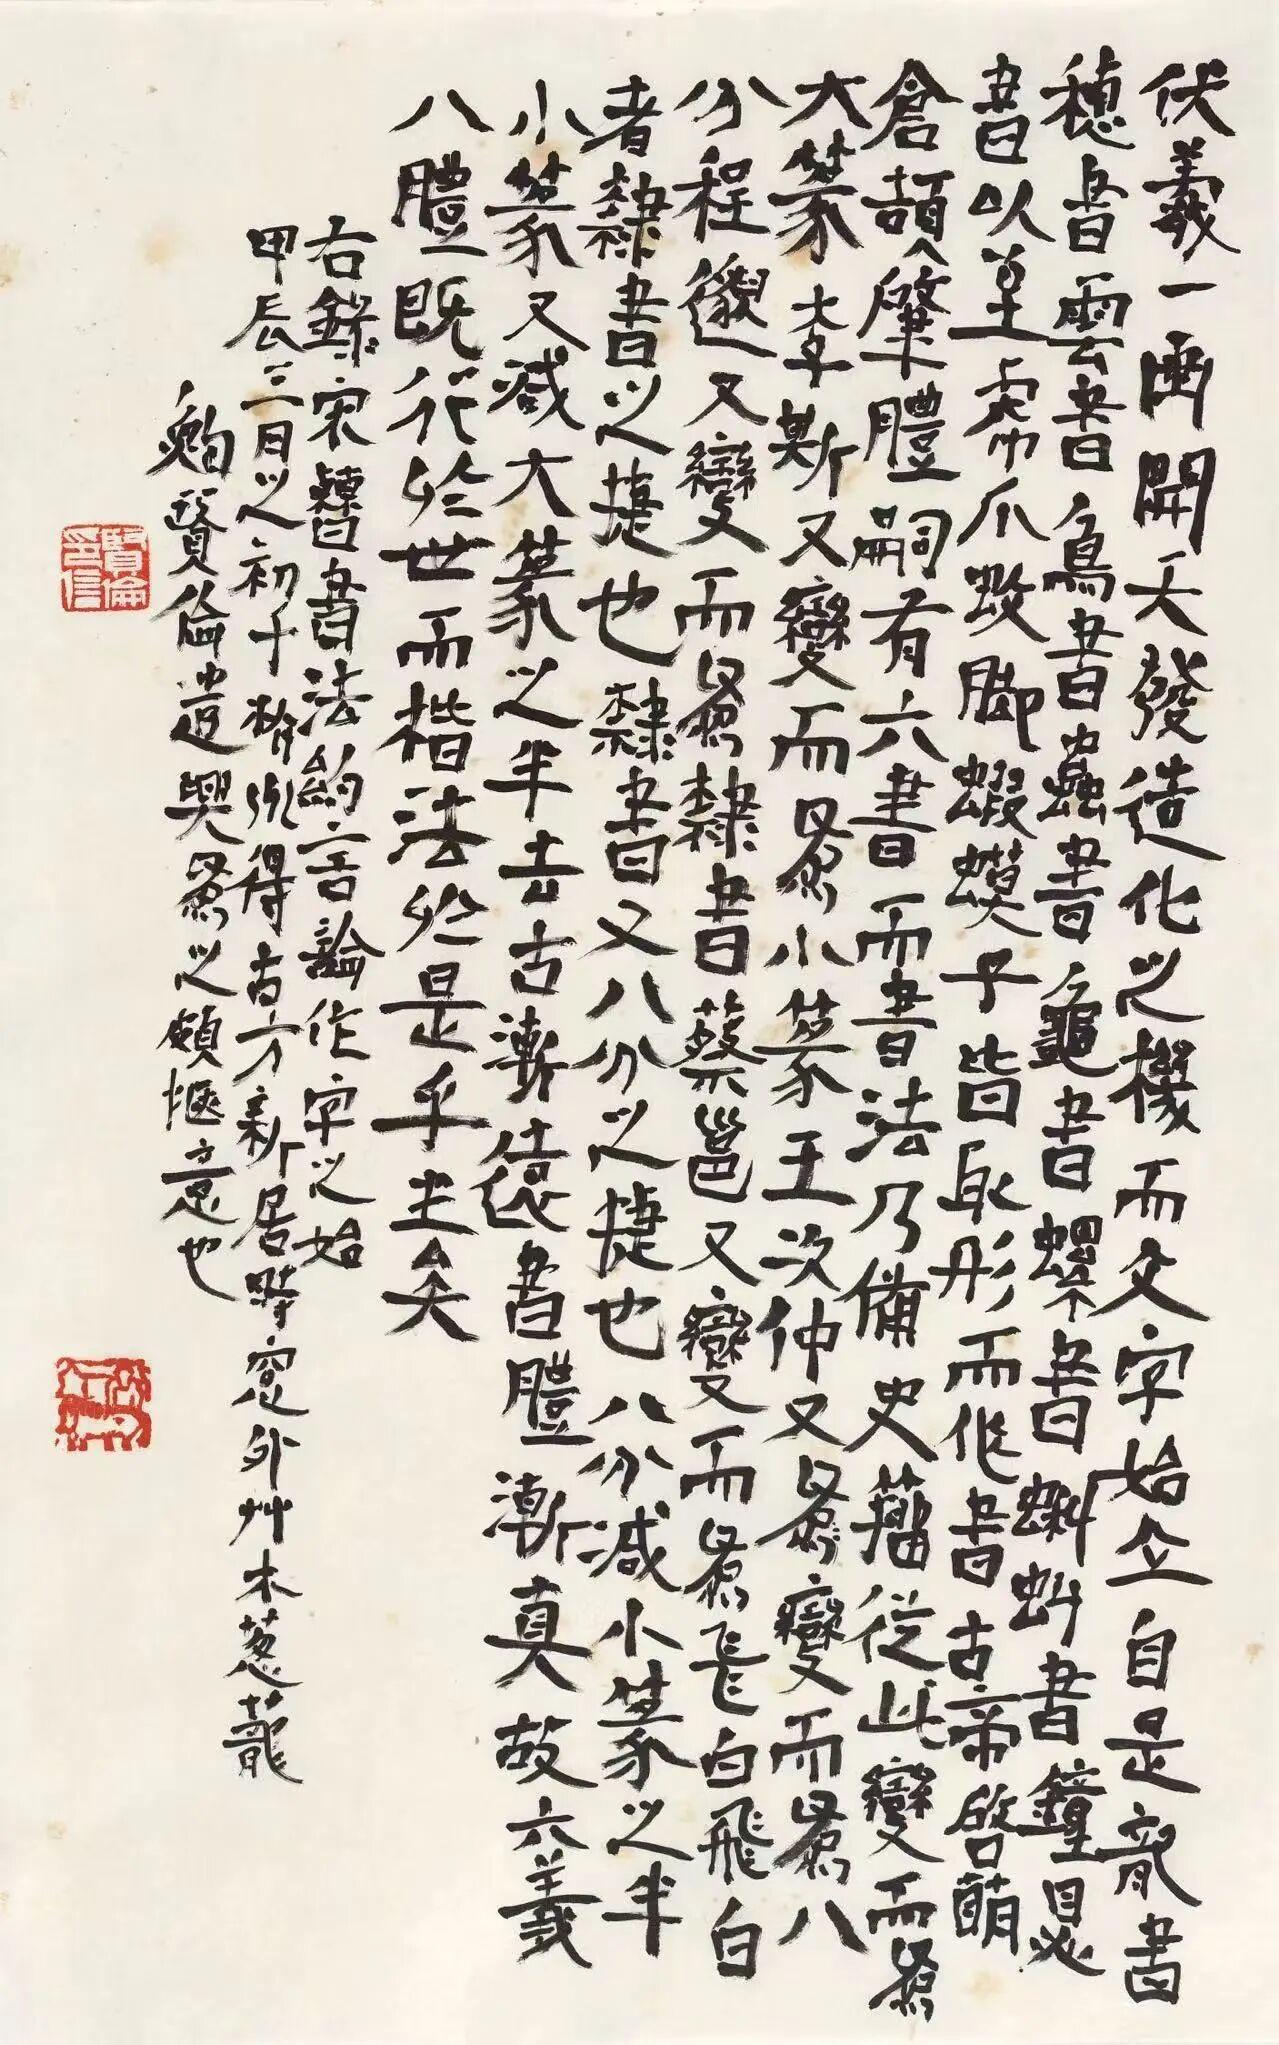 伏羲一畫開天發造化之機而文字始立自是龍書
穗書雲書鳥書蟲書龜書螺書蝌蚪書鐘鼎
書以至虎爪蚊脚蝦蟆子皆取形而作書古帝啓萌
倉頡肇體嗣有六書而書法乃備史籀從此變而為
大篆李斯又變而為小篆王次仲又為變而為八
分程邈又變而為隸書蔡邕又變而為飛白飛白
者隸書之捷也隸書又八分之捷也八分減小篆之半
小篆又減大篆之半去古漸遠書體漸真故六義
八體既行於世而楷法於是乎生矣
右錄宋曹書法約言論作字之始
甲辰三月之初十於得古方新居時窗外艸木蔥蘢
賢倫遣興為之頗愜意也
賢倫印信